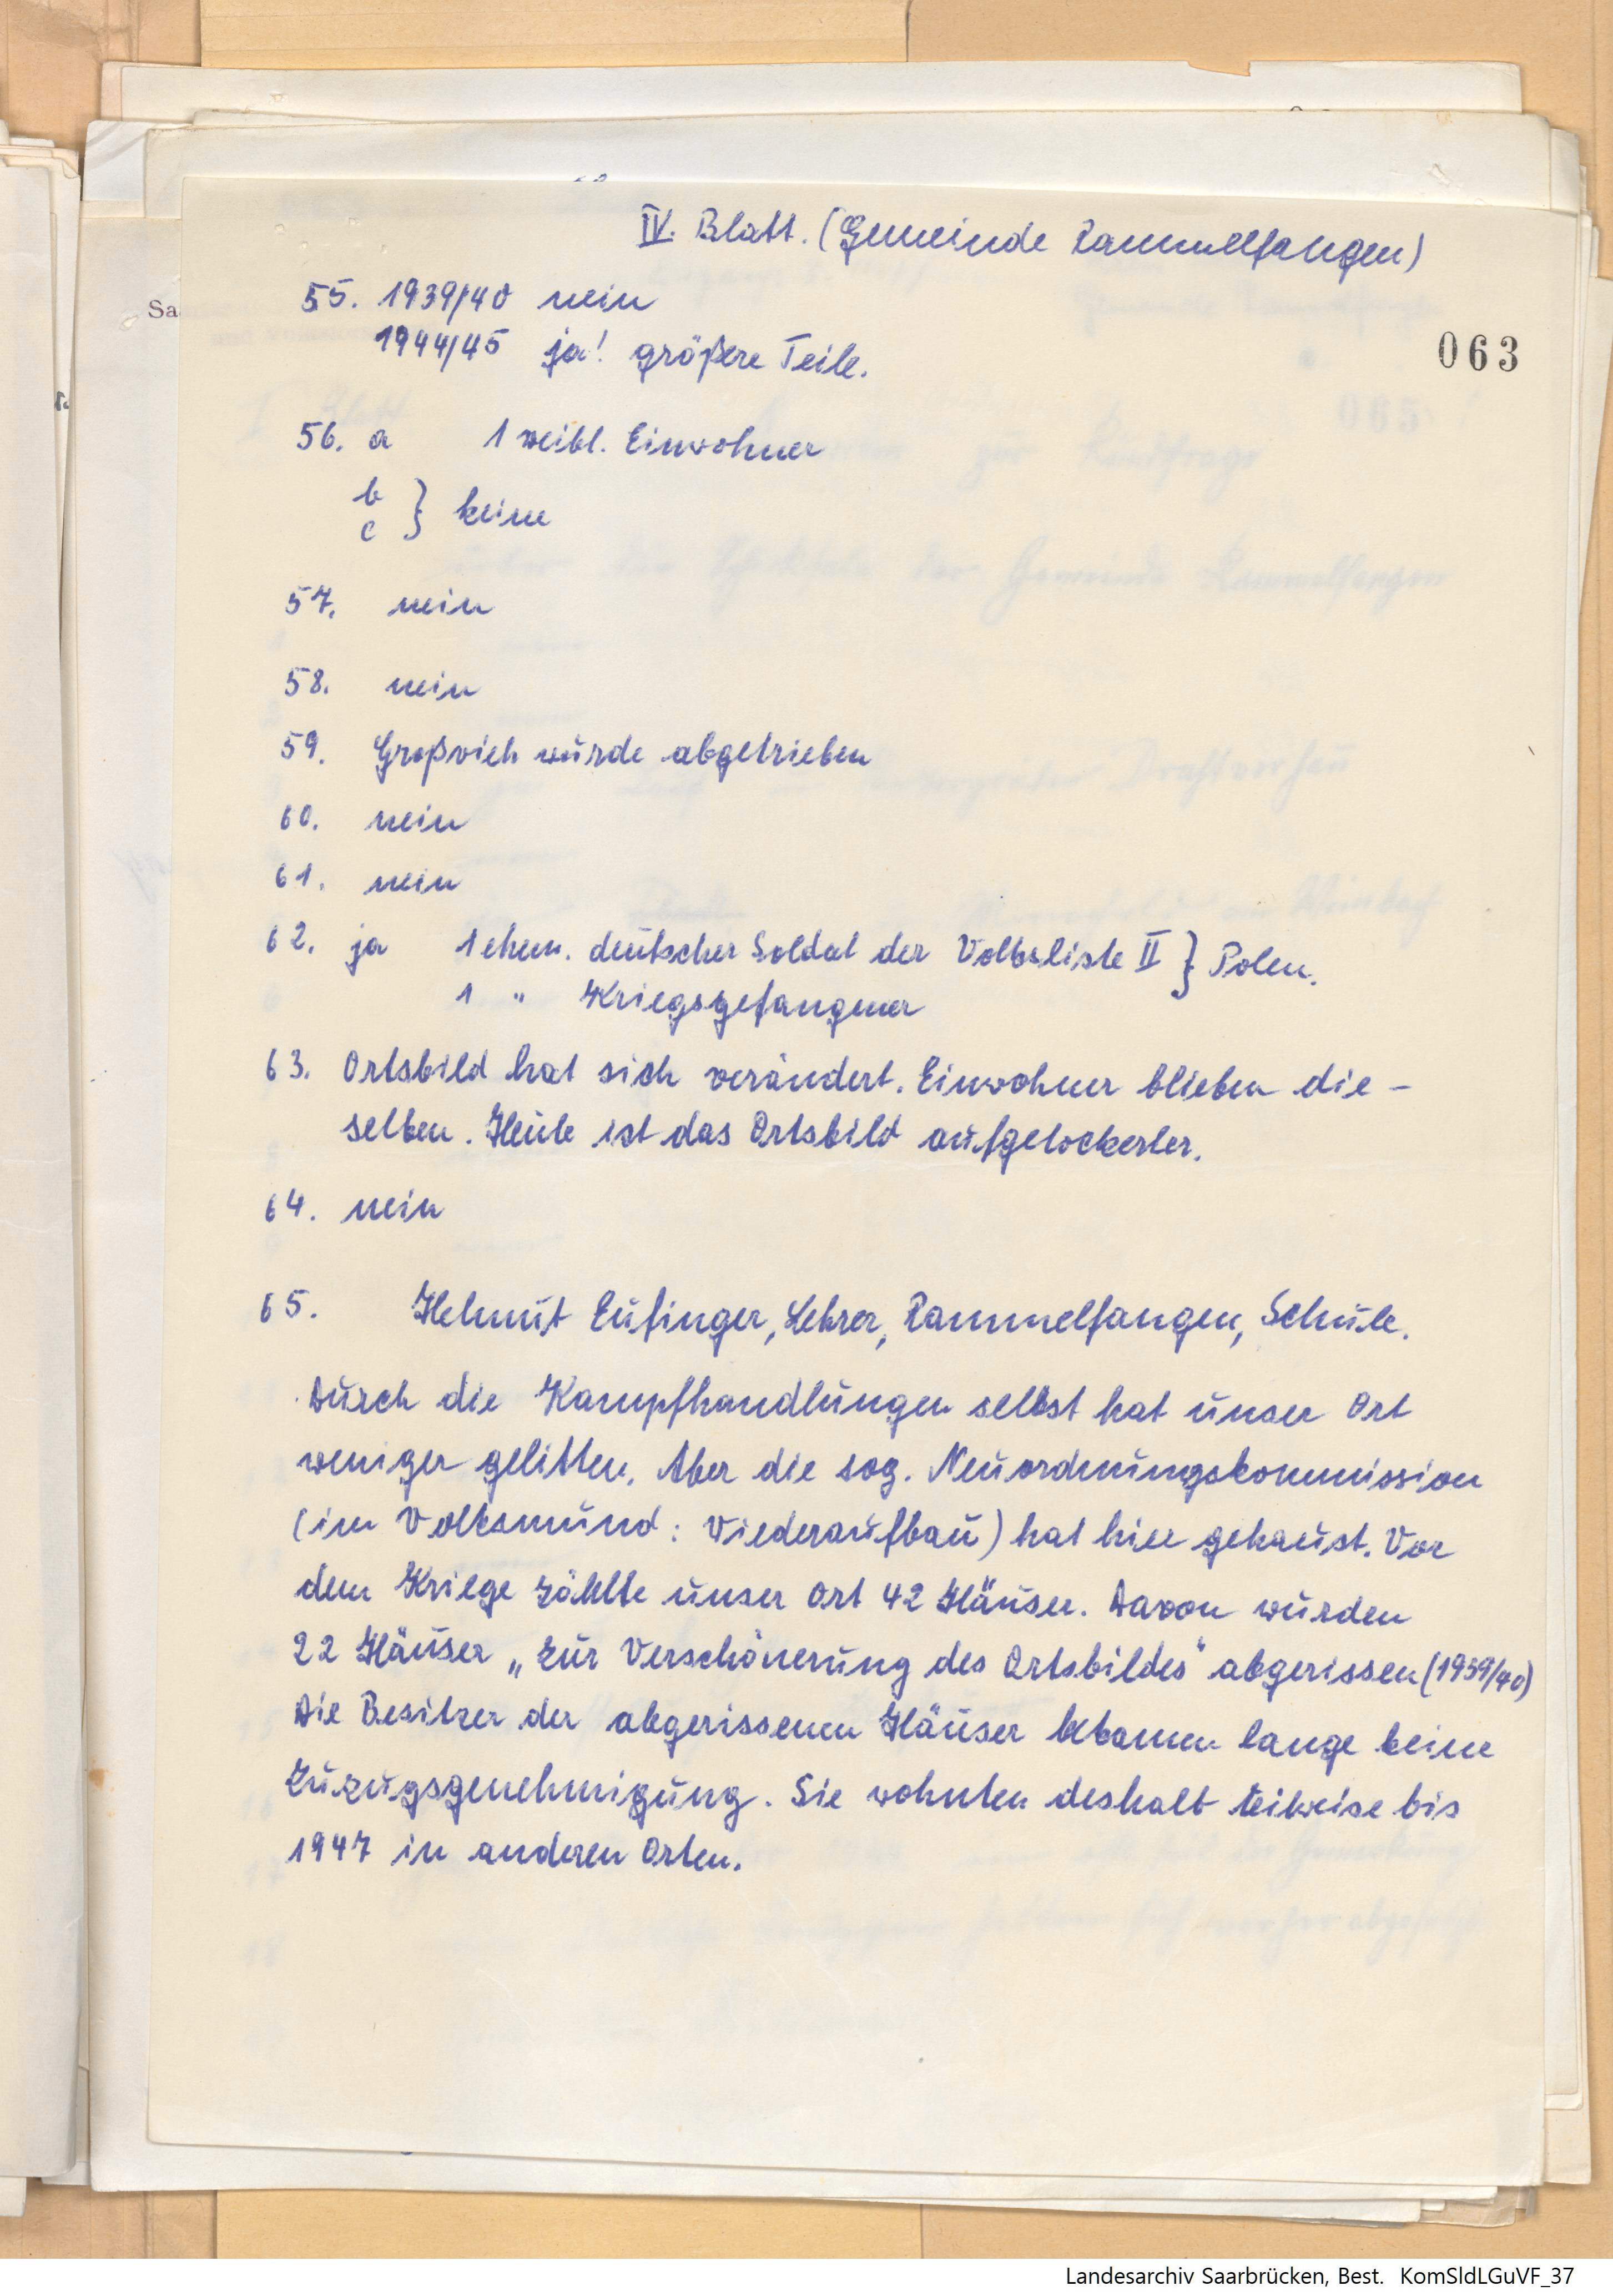 IV. Blatt. (Gemeinde Rammelfangen)
55. 1939/40 nein
1944/45 ja! größere Teile.
063
56. a 1 weibl. Einwohner
b
c } keine
57. nein
58. nein
59. Großvieh wurde abgetrieben
60. nein
61. nein
62. ja 1 ehem. deutscher Soldat der Volksliste II } Polen.
1 " Kriegsgefangener
63. Ortsbild hat sich verändert. Einwohner blieben die-
selben. Heute ist das Ortsbild aufgelockerter.
64. nein
65. Helmut Eufinger, Lehrer, Rammelfangen, Schule.
Durch die Kampfhandlungen selbst hat unser Ort
weniger gelitten. Aber die sog. Neuordnungskommission
(im Volksmund: Wiederaufbau) hat hier gehaust. Vor
dem Kriege zählte unser Ort 42 Häuser. Davon wurden
22 Häuser „zur Verschönerung des Ortsbildes" abgerissen (1939/40)
Die Besitzer der abgerissenen Häuser bekamen lange keine
Zuzugsgenehmigung. Sie wohnten deshalb teilweise bis
1947 in anderen Orten.
Landesarchiv Saarbrücken, Best. KomSldLGuVF_37